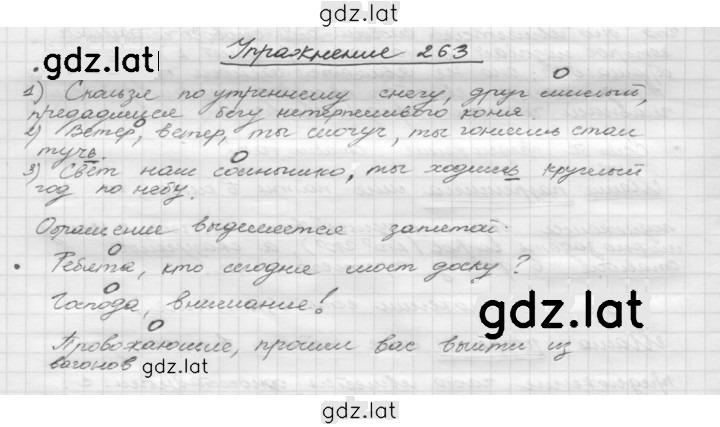 gdz.lat
gdz.lat
Упражнение 263
1) Скользя по утреннему снегу, друг милый,
предадимся бегу нетерпеливого коня.
2) Ветер, ветер, ты могуч, ты гоняешь стаи
тучь.
3) Свет наш солнышко, ты ходишь круглый
год по небу.
Обращение выделяется запятой.
• Ребята, кто сегодня моет доску?
Господа, внимание!
gdz.lat
Провожающие, просим вас выйти из
вагонов
gdz.lat
gdz.lat